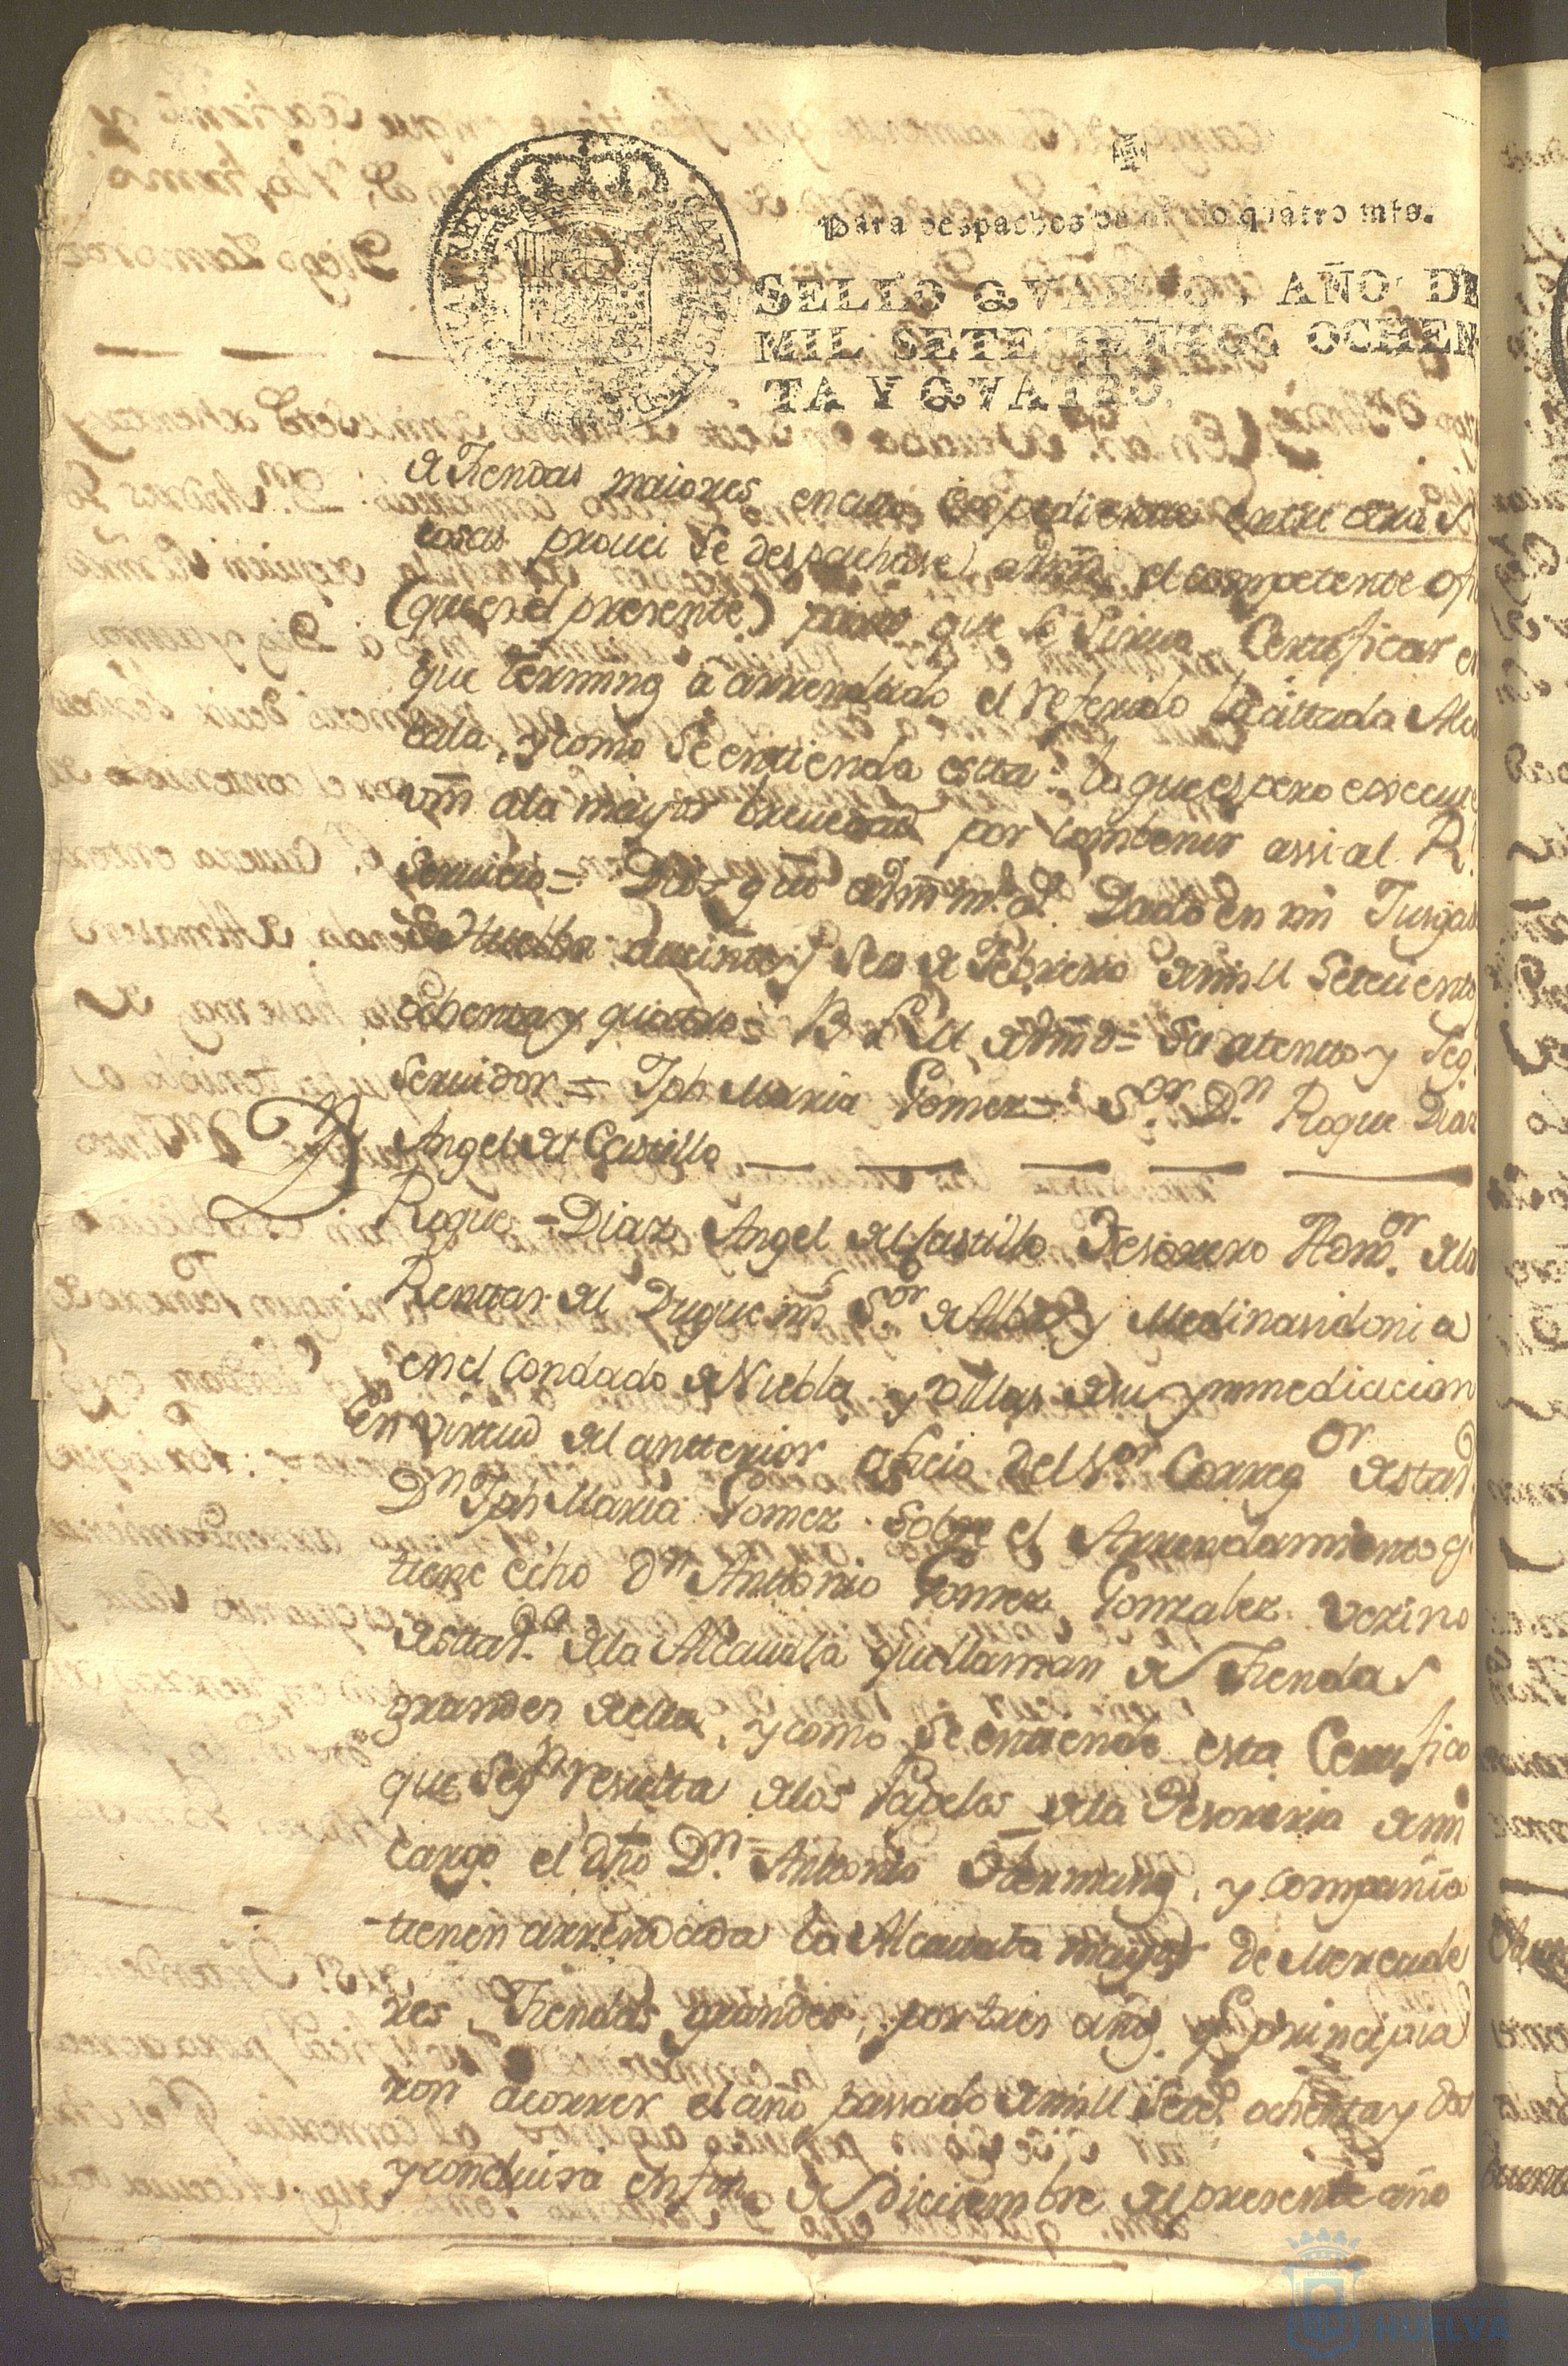 Para despachos de oficio quatro mrs.
SELLO QVARTO, AÑO DE
MIL SETECIENTOS OCHEN
TA Y QVATRO.
de Tiendas maiores, en cuio expediente entre otras
cosas prouei se despachase a Vm el competente ofi
(que es el presente) para que se sirua Certificar el
que termino á arrendado el referido la citada Alca
cala, y como se entienda esta: lo que espero execute
vm a la mayor breuedad por combenir assi al R.l
Seruicio = Dios gue a Vm m.s a.s Dado en mi Jusgado
de Huelba a veinte y seis de Febrero de mill setecientos
ochenta y quatro = B L M de Vmd = su atento y seg.
Seruidor = Jph Maria Gomez = S.or D.n Roque Diaz
Angel del Castillo
D
Roque Diaz Angel del Castillo Tesorero Adm.or de las
Renttas del Duque mi S.or de Alba y Medinasidonia
en el Condado de Niebla y Villas de su ynmediacion
En virtud del antterior oficio del S.or Correg.or de esta
D.n Jph Maria Gomez sobre el Arrendamiento q.
tiene echo D.n Anttonio Gomez Gonzalez vezino
de esta V.a de la Alcauala que llaman de Tiendas
grandes de ella, y como se entiende esta Certifico
que seg.n resulta de los Papeles de la Tesoreria de mi
cargo el dho D.n Antonio Hermano, y compañia
tienen arrendada la Alcauala mayor de Mercade
res, Tiendas grandes, por tres años q.e principia
ron a correr el año passado de mill setec.s ochenta y dos
y concluira en fin de Diciembre del presente año
HUELVA